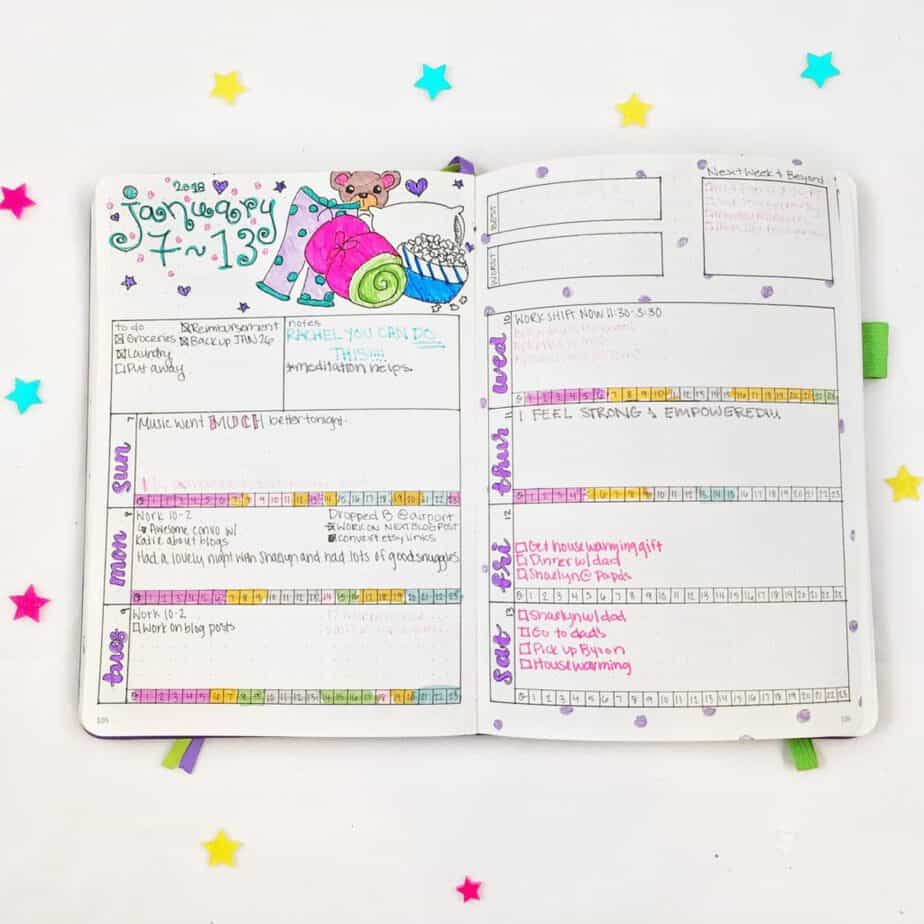 2018
january
7~13
to do
Groceries
Laundry
Put away
Reimbursement
Backup JAN 26
notes
RACHEL YOU CAN DO
THIS!!!!
*meditation helps.
7
sun
Music went MUCH better tonight.
0 1 2 3 4 5 6 7 8 9 10 11 12 13 14 15 16 17 18 19 20 21 22 23
8
mon
Work 10-2
Awesome convo w/
Katie about blogs
Dropped B @ airport
WORK ON NEXT BLOG POST
convert etsy links
Had a lovely night with Shaelyn and had lots of good snuggles.
0 1 2 3 4 5 6 7 8 9 10 11 12 13 14 15 16 17 18 19 20 21 22 23
9
tues
Work 10-2
Work on blog posts
0 1 2 3 4 5 6 7 8 9 10 11 12 13 14 15 16 17 18 19 20 21 22 23
105
BEST
WORST
Next Week & Beyond
10
wed
WORK SHIFT NOW 11:30-3:30
0 1 2 3 4 5 6 7 8 9 10 11 12 13 14 15 16 17 18 19 20 21 22 23
11
thur
I FEEL STRONG & EMPOWERED!!!
0 1 2 3 4 5 6 7 8 9 10 11 12 13 14 15 16 17 18 19 20 21 22 23
12
fri
Get housewarming gift
Dinner w/ dad
Shaelyn @ Papas
0 1 2 3 4 5 6 7 8 9 10 11 12 13 14 15 16 17 18 19 20 21 22 23
13
sat
Shaelyn w/ dad
Go to dad's
Pick up Byron
Housewarming
0 1 2 3 4 5 6 7 8 9 10 11 12 13 14 15 16 17 18 19 20 21 22 23